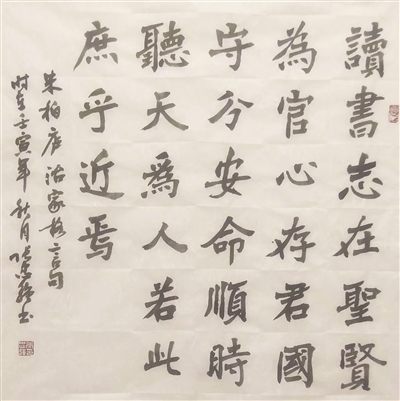 讀書志在聖賢
為官心存君國
守分安命順時
聽天為人若此
庶乎近焉
朱柏廬治家格言句
時在壬寅年秋月
書